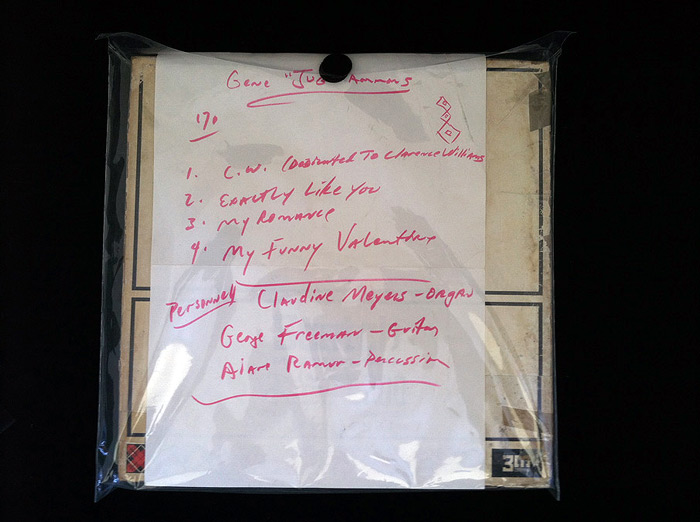 Gene "Jug" Ammons
1. C.W. (Dedicated To Clarence Williams
2. Exactly Like You
3. My Romance
4. My Funny Valentine
Personnell Claudine Meyers - Organ
George Freeman - Guitar
- Percussion
3M